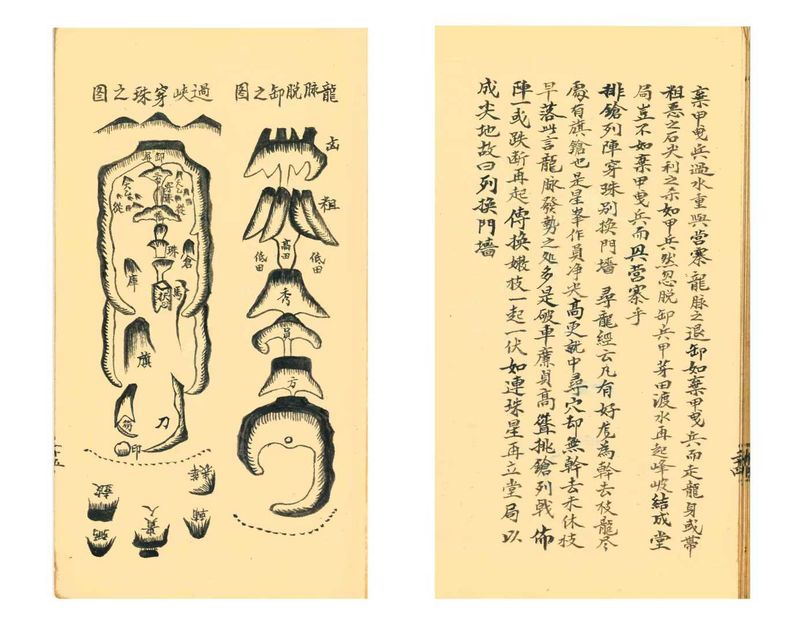 棄甲曳兵過水重興營寨 龍脉之退卸如棄甲曳兵而走龍身或帶
粗惡之石尖利之赤如甲兵然忽脱卸兵甲芽田渡水再起峰岐結成堂
局豈不如棄甲曳兵而興營寨乎
排鎗列陣穿珠别換門墻 尋龍經云凡有好龍為幹去枝龍尽
處有旗鎗也是星峯作員净尖高更就中尋穴却無幹去未休枝
早落此言龍脉發勢之处多是破車廉貞高聳挑鎗列戟佈
陣一或跌断再起傳換嫩枝一起一伏如連珠星再立堂局以
成尖地故曰列換門墻
龍脉脱卸之图
粗
高田
低田
低田
秀
員
方
過峡穿珠之图
珠
倉
庫
馬
旗
刀
印
鼓
貴人